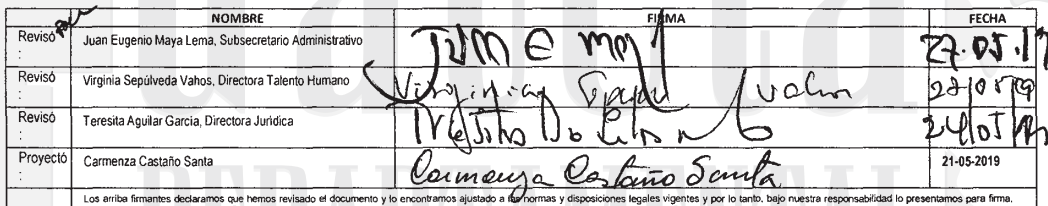 NOMBRE FIRMA FECHA
Revisó : Juan Eugenio Maya Lema, Subsecretario Administrativo 27.05.19
Revisó : Virginia Sepúlveda Vahos, Directora Talento Humano Virginia Sepul Vahos
Revisó : Teresita Aguilar García, Directora Jurídica
Proyectó : Carmenza Castaño Santa Carmenza Castaño Santa 21-05-2019
Los arriba firmantes declaramos que hemos revisado el documento y lo encontramos ajustado a las normas y disposiciones legales vigentes y por lo tanto, bajo nuestra responsabilidad lo presentamos para firma.